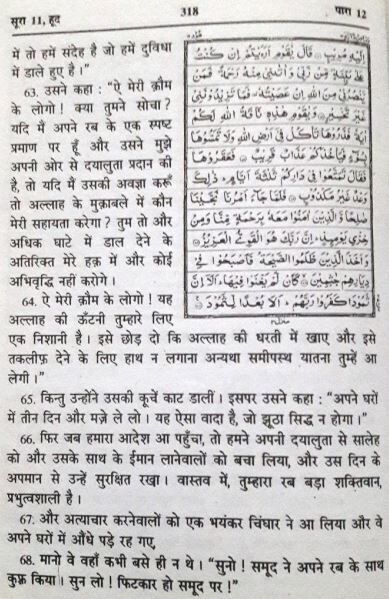 सूरा 11, हूद
318
पारा 12
में तो हमें संदेह है जो हमें दुविधा
में डाले हुए है।”
63. उसने कहा : “ऐ मेरी क़ौम
के लोगो! क्या तुमने सोचा?
यदि मैं अपने रब के एक स्पष्ट
प्रमाण पर हूँ और उसने मुझे
अपनी ओर से दयालुता प्रदान की
है, तो यदि मैं उसकी अवज्ञा करूँ
तो अल्लाह के मुक़ाबले में कौन
मेरी सहायता करेगा? तुम तो और
अधिक घाटे में डाल देने के
अतिरिक्त मेरे हक़ में और कोई
अभिवृद्धि नहीं करोगे।
64. ऐ मेरी क़ौम के लोगो! यह
अल्लाह की ऊँटनी तुम्हारे लिए
एक निशानी है। इसे छोड़ दो कि अल्लाह की धरती में खाए और इसे
तकलीफ़ देने के लिए हाथ न लगाना अन्यथा समीपस्थ यातना तुम्हें आ
लेगी।”
65. किन्तु उन्होंने उसकी कूचें काट डालीं। इसपर उसने कहा : “अपने घरों
में तीन दिन और मज़े ले लो। यह ऐसा वादा है, जो झूठा सिद्ध न होगा।”
66. फिर जब हमारा आदेश आ पहुँचा, तो हमने अपनी दयालुता से सालेह
को और उसके साथ के ईमान लानेवालों को बचा लिया, और उस दिन के
अपमान से उन्हें सुरक्षित रखा। वास्तव में, तुम्हारा रब बड़ा शक्तिवान,
प्रभुत्वशाली है।
67. और अत्याचार करनेवालों को एक भयंकर चिंघार ने आ लिया और वे
अपने घरों में औंधे पड़े रह गए,
68. मानो वे वहाँ कभी बसे ही न थे। “सुनो! समूद ने अपने रब के साथ
कुफ़्र किया। सुन लो! फिटकार हो समूद पर!”
اِلَيْهِ مُرِيْبٍ قَالَ يٰقَوْمِ اَرَءَيْتُمْ اِنْ كُنْتُ
عَلٰى بَيِّنَةٍ مِّنْ رَّبِّيْ وَاٰتٰىنِيْ مِنْهُ رَحْمَةً فَمَنْ
يَّنْصُرُنِيْ مِنَ اللّٰهِ اِنْ عَصَيْتُهٗ فَمَا تَزِيْدُوْنَنِيْ
غَيْرَ تَخْسِيْرٍ وَيٰقَوْمِ هٰذِهٖ نَاقَةُ اللّٰهِ لَكُمْ
اٰيَةً فَذَرُوْهَا تَاْكُلْ فِيْ اَرْضِ اللّٰهِ وَلَا تَمَسُّوْهَا
بِسُوْٓءٍ فَيَاْخُذَكُمْ عَذَابٌ قَرِيْبٌ فَعَقَرُوْهَا
فَقَالَ تَمَتَّعُوْا فِيْ دَارِكُمْ ثَلٰثَةَ اَيَّامٍ ذٰلِكَ
وَعْدٌ غَيْرُ مَكْذُوْبٍ فَلَمَّا جَآءَ اَمْرُنَا نَجَّيْنَا
صٰلِحًا وَّالَّذِيْنَ اٰمَنُوْا مَعَهٗ بِرَحْمَةٍ مِّنَّا وَمِنْ
خِزْيِ يَوْمِئِذٍ اِنَّ رَبَّكَ هُوَ الْقَوِيُّ الْعَزِيْزُ
وَاَخَذَ الَّذِيْنَ ظَلَمُوا الصَّيْحَةُ فَاَصْبَحُوْا فِيْ
دِيَارِهِمْ جٰثِمِيْنَ كَاَنْ لَّمْ يَغْنَوْا فِيْهَا اَلَآ اِنَّ
ثَمُوْدَا۟ كَفَرُوْا رَبَّهُمْ اَلَا بُعْدًا لِّثَمُوْدَ